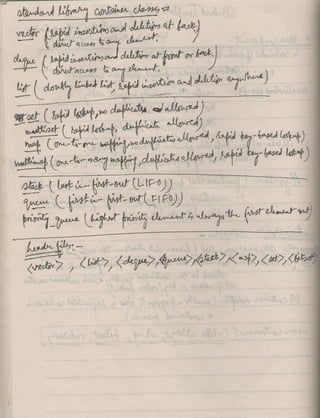 standard library container classes =
vector ( rapid insertion and deletion at back )
direct access to any element.
deque ( rapid insertion and deletion at front or back )
direct access to any element.
list ( doubly linked list, rapid insertion and deletion anywhere )
set ( rapid lookup, no duplicates allowed )
multiset ( rapid lookup, duplicate allowed )
map ( one-to-one mapping, no duplicates allowed, rapid key-based lookup )
multimap ( one-to-many mapping, duplicates allowed, rapid key-based lookup )
stack ( last-in-first-out (LIFO) )
queue ( first-in-first-out (FIFO) )
priority_queue ( highest priority element is always the first element out )
header files -
<vector>, <list>, <deque>, <queue>, <stack>, <map>, <set>, <bitset>